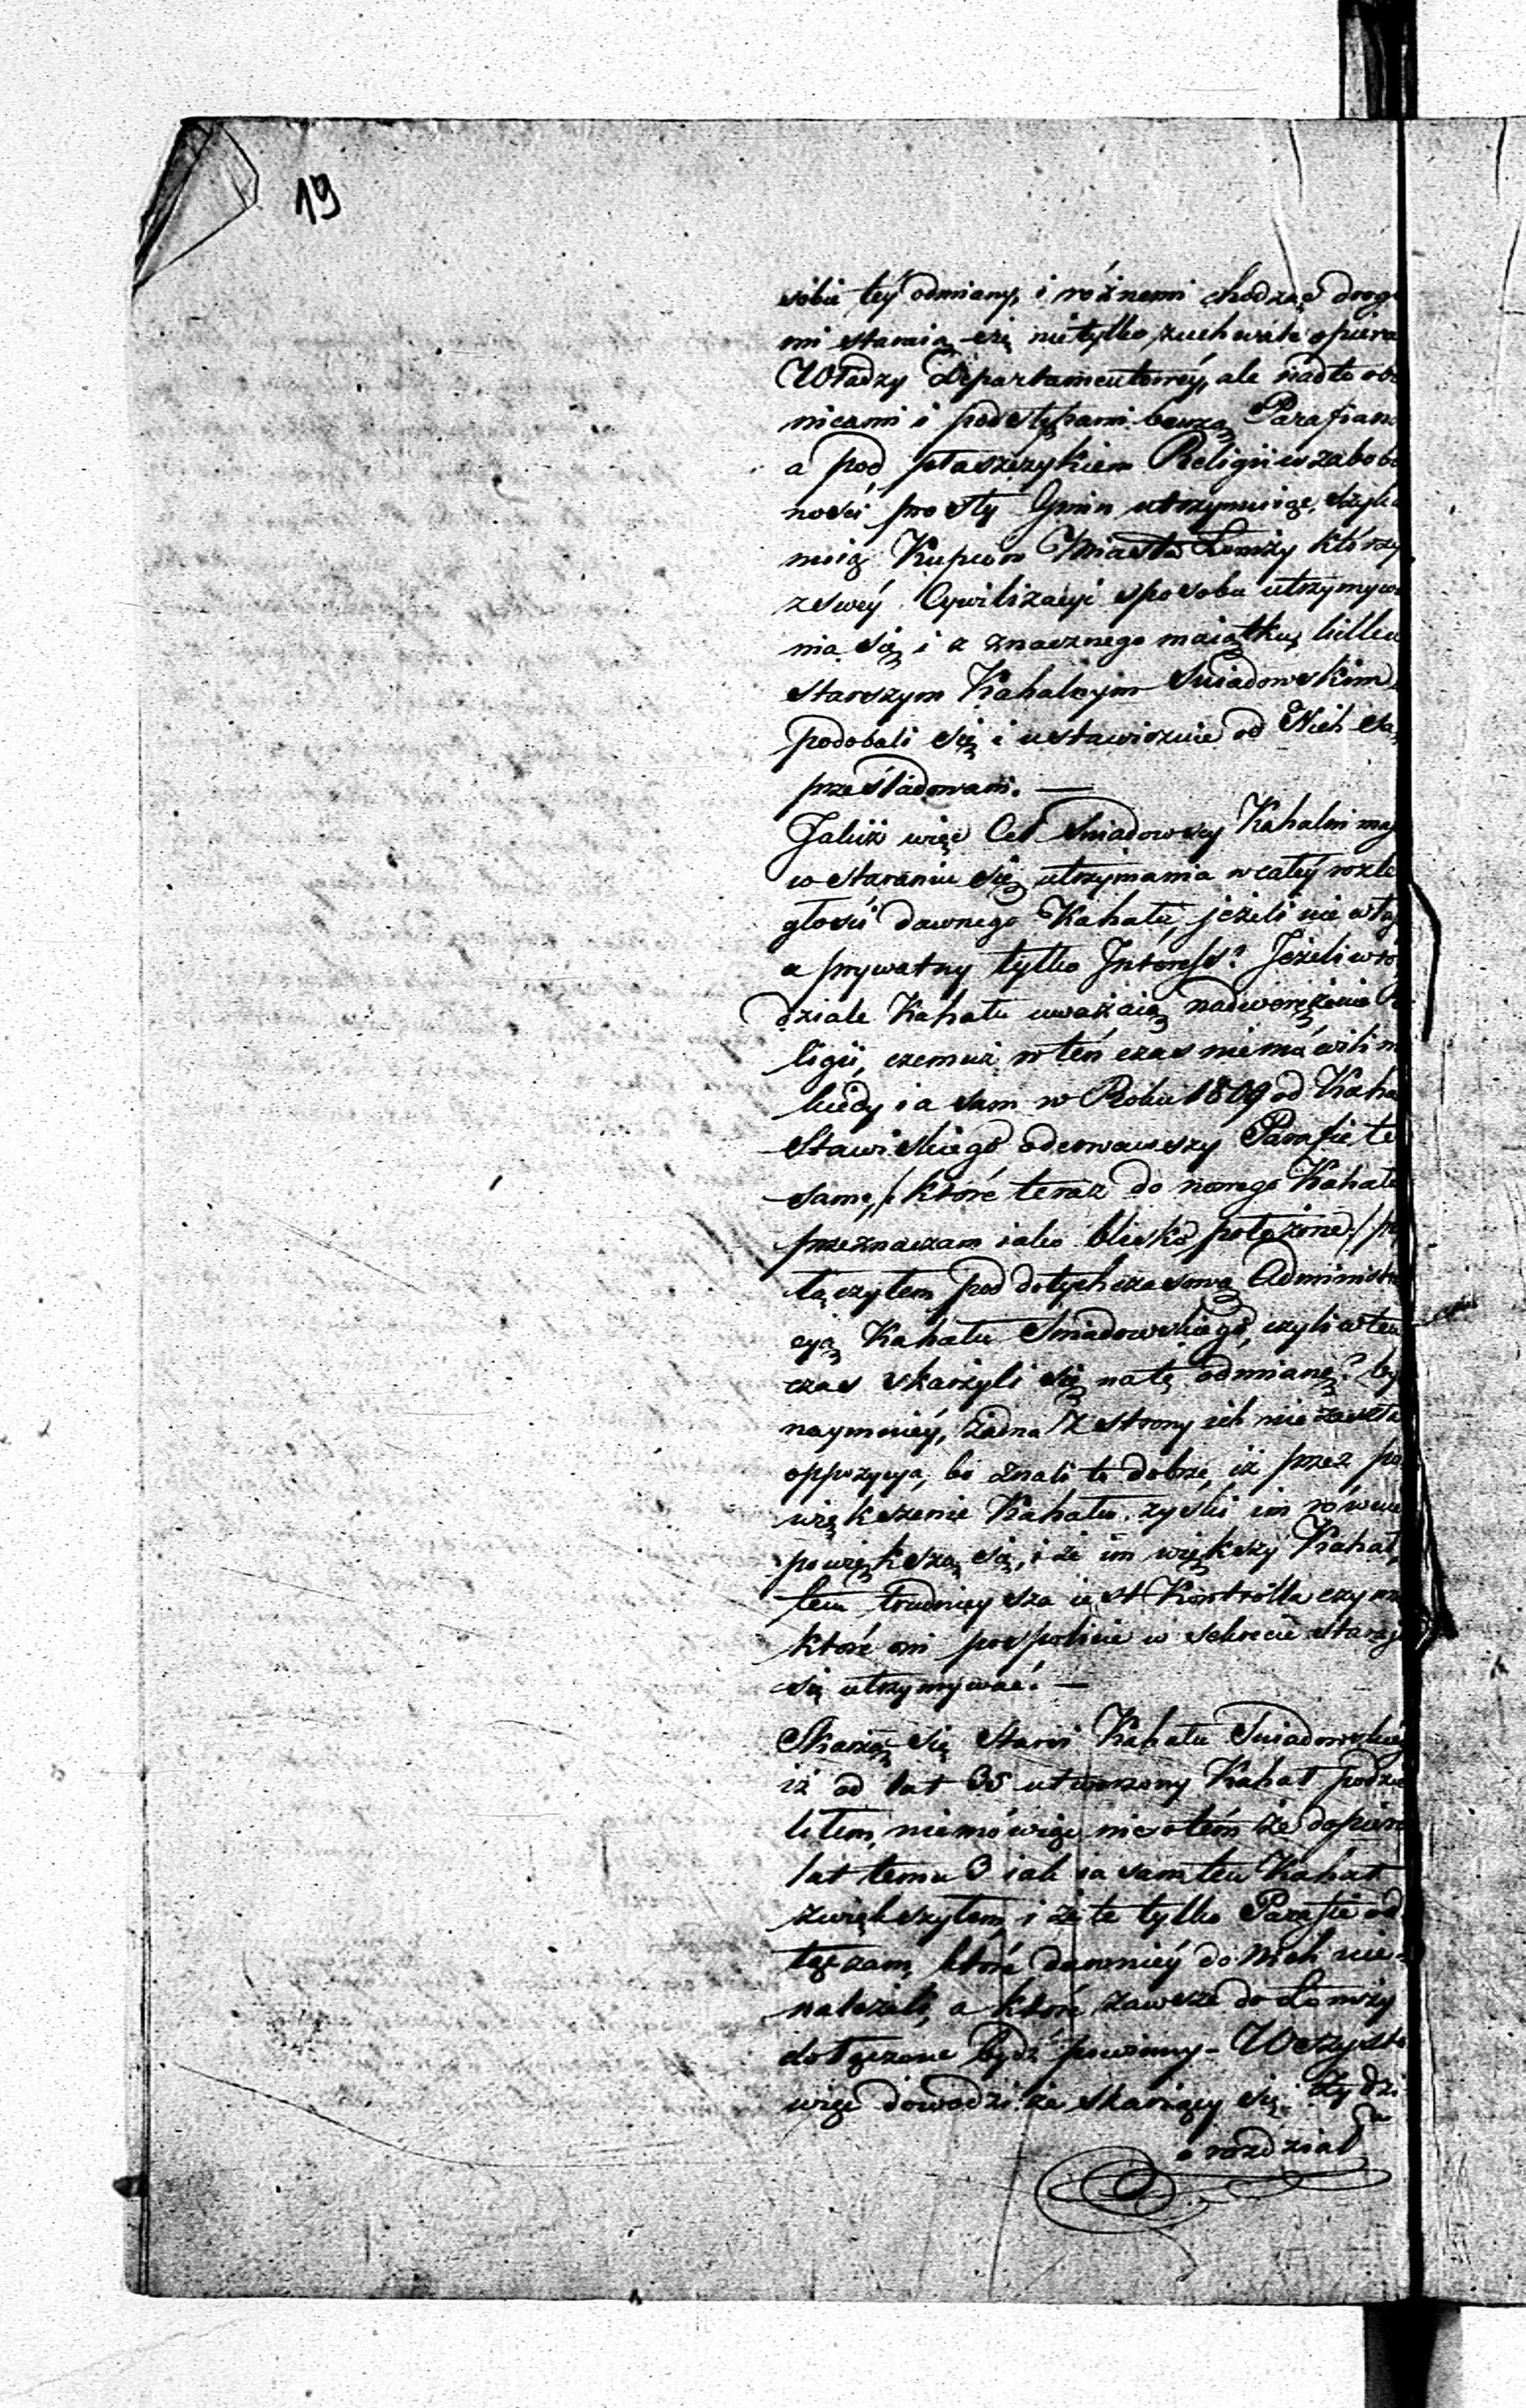 19
sobie téy odmiany, i różnemi chodząc drog
mi staraią się nietylko zuchwale opiera
Władzy Departamentowéy, ale nadto ob
nicami i podstępami burzą Parafian
a pod płaszczykiem Religii w zabobo
ności prosty Gmin utrzymuiąc, szyka
nuią Kupców Miasta Łomży którzy
z swéy Cywilizacyi sposobu utrzymywa
nia się i z znacznego maiątku, kilku
starszym Kahalnym Sniadowskim
podobali się i ustawicznie od Nich są
prześladowani. —
Jakiż więc Cel Sniadowscy Kahalni maj
w staraniu się utrzymania w całéy rozle
głości dawnego Kahału, jeżeli nie
a prywatny tylko Interess? Jeżeli w ro
dziale Kahału uważaią nadwerężenie Re
ligii, czemuż w ten czas nie mówili n
kiedy ia sam w Roku 1809 od Kaha
Stawiskiego oderwawszy Parafie te
same, /: które teraz do nowego Kahału
przeznaczam iako blisko położone :/ p
łączyłem pod dotychczasową Administra
cyą Kahału Sniadowskiego, czyli w ten
czas skarżyli się na tę odmianę? by
naymniéy, żadna z strony ich nie zaszła
oppozycya, bo znali to dobrze, iż przez po
większenie Kahału zyski im równie
powiększą się, i że im większy Kahał,
tem trudnieysza iest Kontrolla czyn
które oni pospolicie w sekrecie staraj
się utrzymywać. —
Skarżą się Starsi Kahału Sniadowskieg
iż od lat 35 utworzony Kahał podzie
liłem, niemówiąc nic otém że dopiero
lat temu 3 iak ia sam ten Kahał
zwiększyłem, i że te tylko Parafie od
łączam, które dawniéy do Nich nie-
należeli, a które zawsze do Łomży
dołączone bydź powinny - Wszystko
więc dowodzi że skarżący się Żydzi
o rozdział